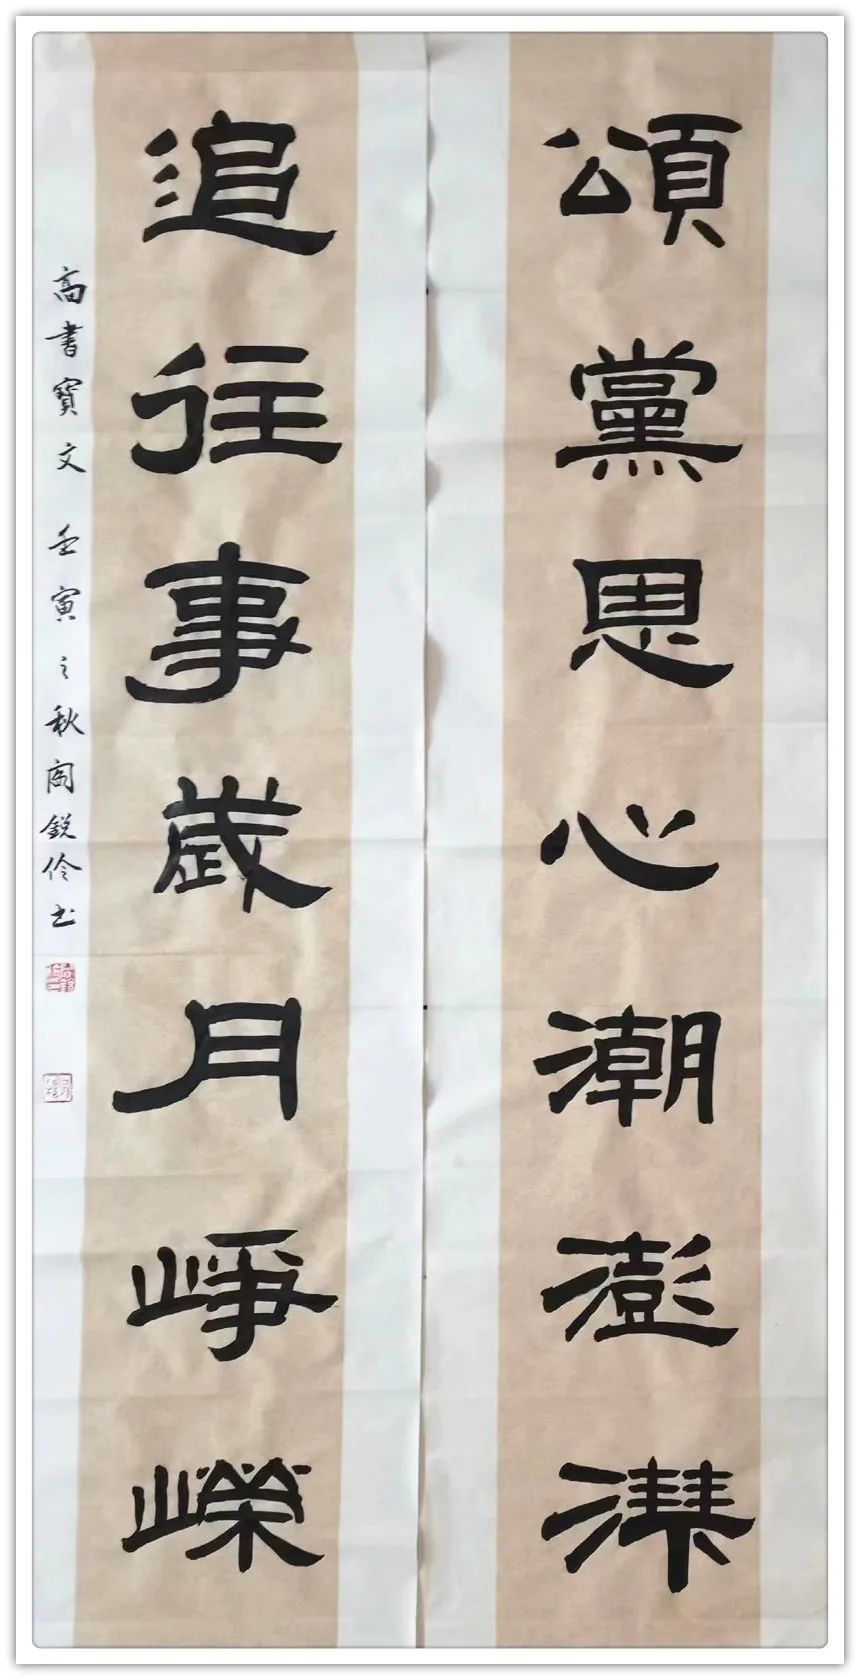 頌黨恩心潮澎湃
追往事歲月崢嶸
高書寶文 壬寅之秋 閻銳伶书